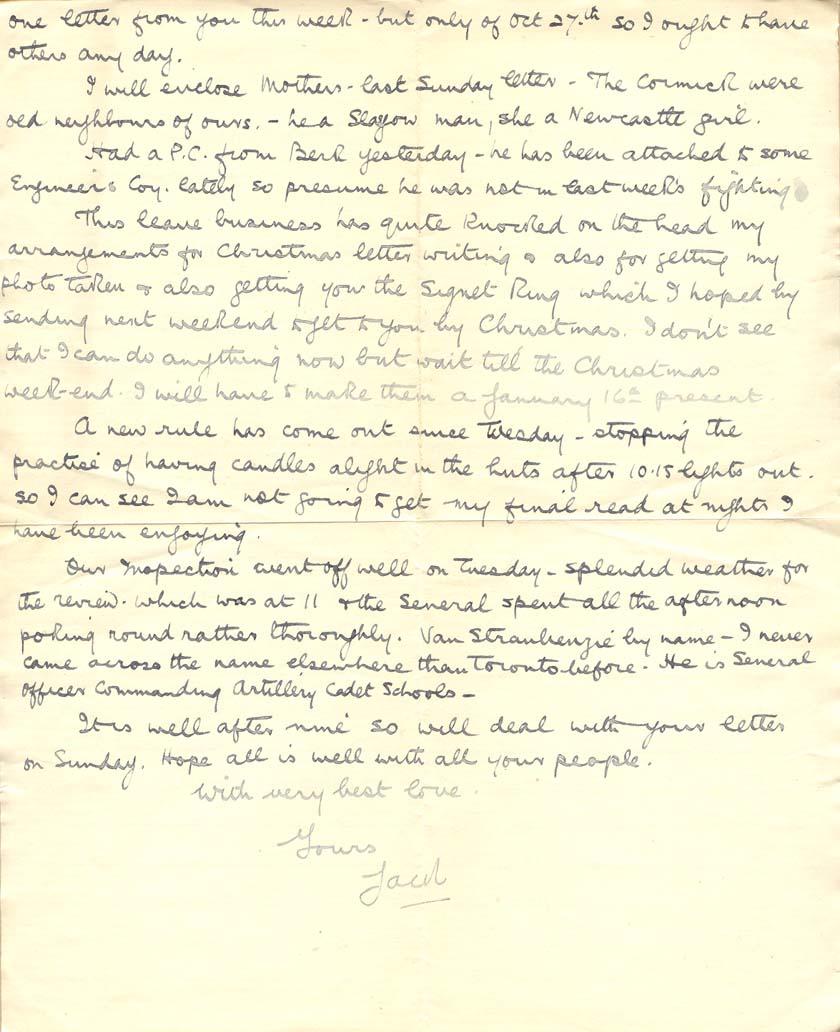 one letter from you this week - but only of Oct 27.th so I ought to have
others any day.
I will enclose Mothers - last Sunday letter - The Cormick were
old neighbours of ours. - he a Glasgow man, she a Newcastle girl.
Had a P.C. from Berk yesterday - he has been attached to some
Engineers Coy. lately so presume he was not in last week's fighting
This leave business has quite knocked on the head my
arrangements for Christmas letter writing & also for getting my
photo taken & also getting you the Signet Ring which I hoped by
sending next weekend to get to you by Christmas. I don't see
that I can do anything now but wait till the Christmas
week-end. I will have to make them a January 16th present.
A new rule has come out since Tuesday - stopping the
practice of having candles alight in the huts after 10.15 lights out.
so I can see I am not going to get my final read at nights I
have been enjoying.
Our Inspection went off well on Tuesday - splendid weather for
the review. which was at 11 & the General spent all the afternoon
poking round rather thoroughly. Van Straubenzie by name - I never
came across the name elsewhere than Toronto before. He is General
Officer Commanding Artillery Cadet Schools -
It is well after nine so will deal with your letter
on Sunday. Hope all is well with all your people.
With very best love.
Yours
Jack